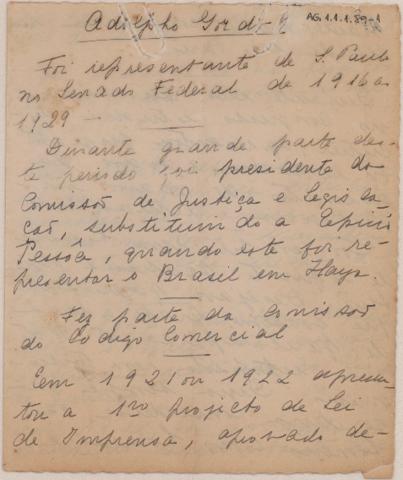 Adolpho Gordo
AG.1.1.1.89-1
Foi representante de S. Paulo
no Senado Federal de 1916 a
1929 —
Durante grande parte des-
te periodo foi presidente da
Comissão de Justiça e Legisla-
ção, substituindo a Epicio
Pessôa, quando este foi re-
presentar o Brasil em Haya.
Fez parte da Comissão
do Codigo Comercial
Em 1921 ou 1922 apresen-
tou a 1ro projecto de Lei
de Imprensa, aprovado de-